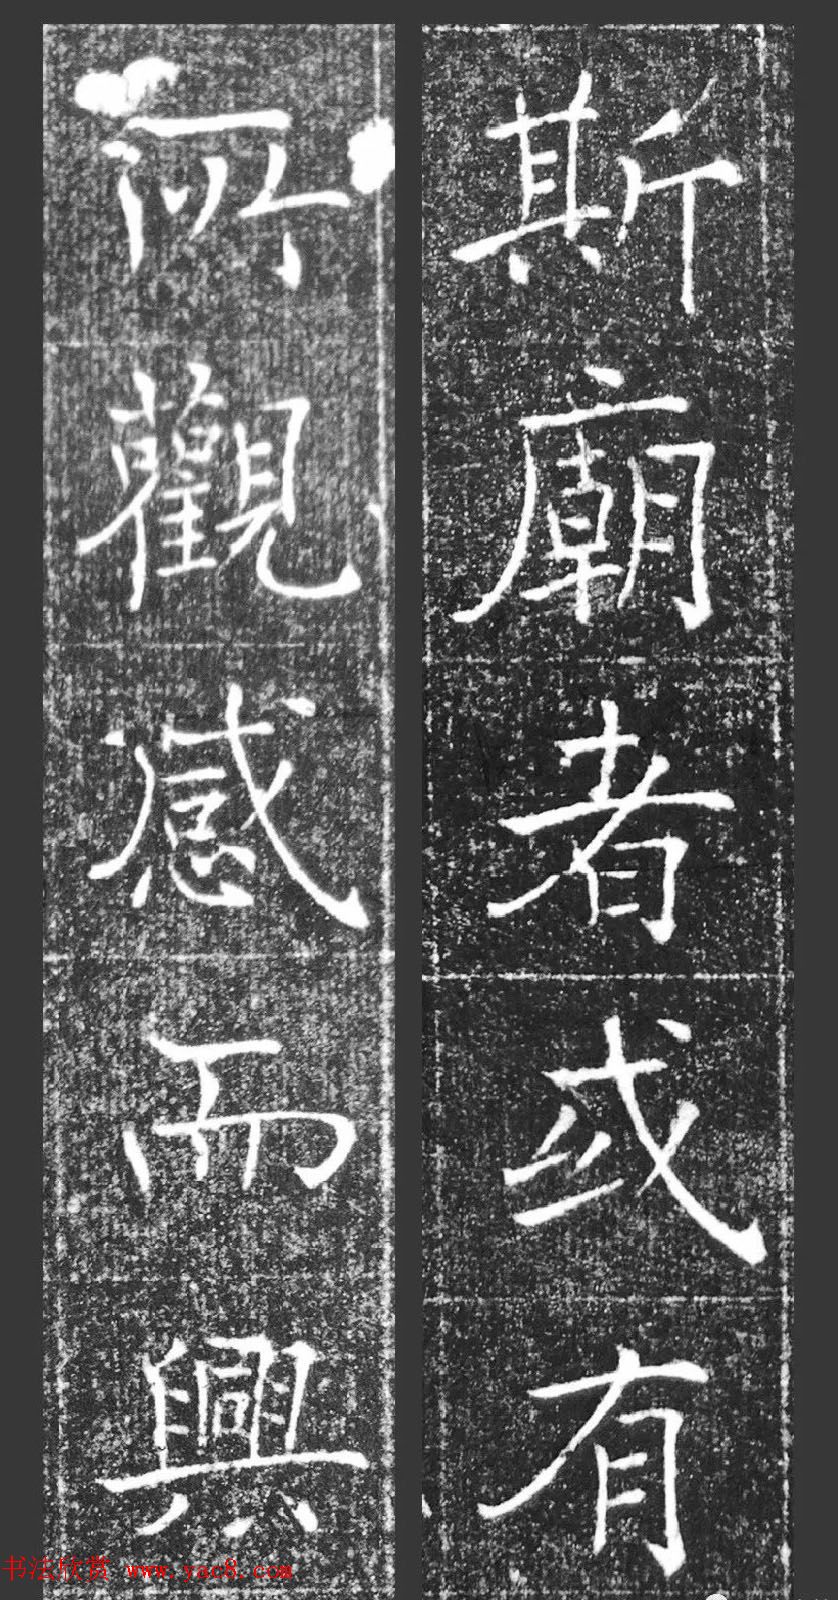 斯廟者或有
所觀感而興
书法欣赏 www.yac8.com